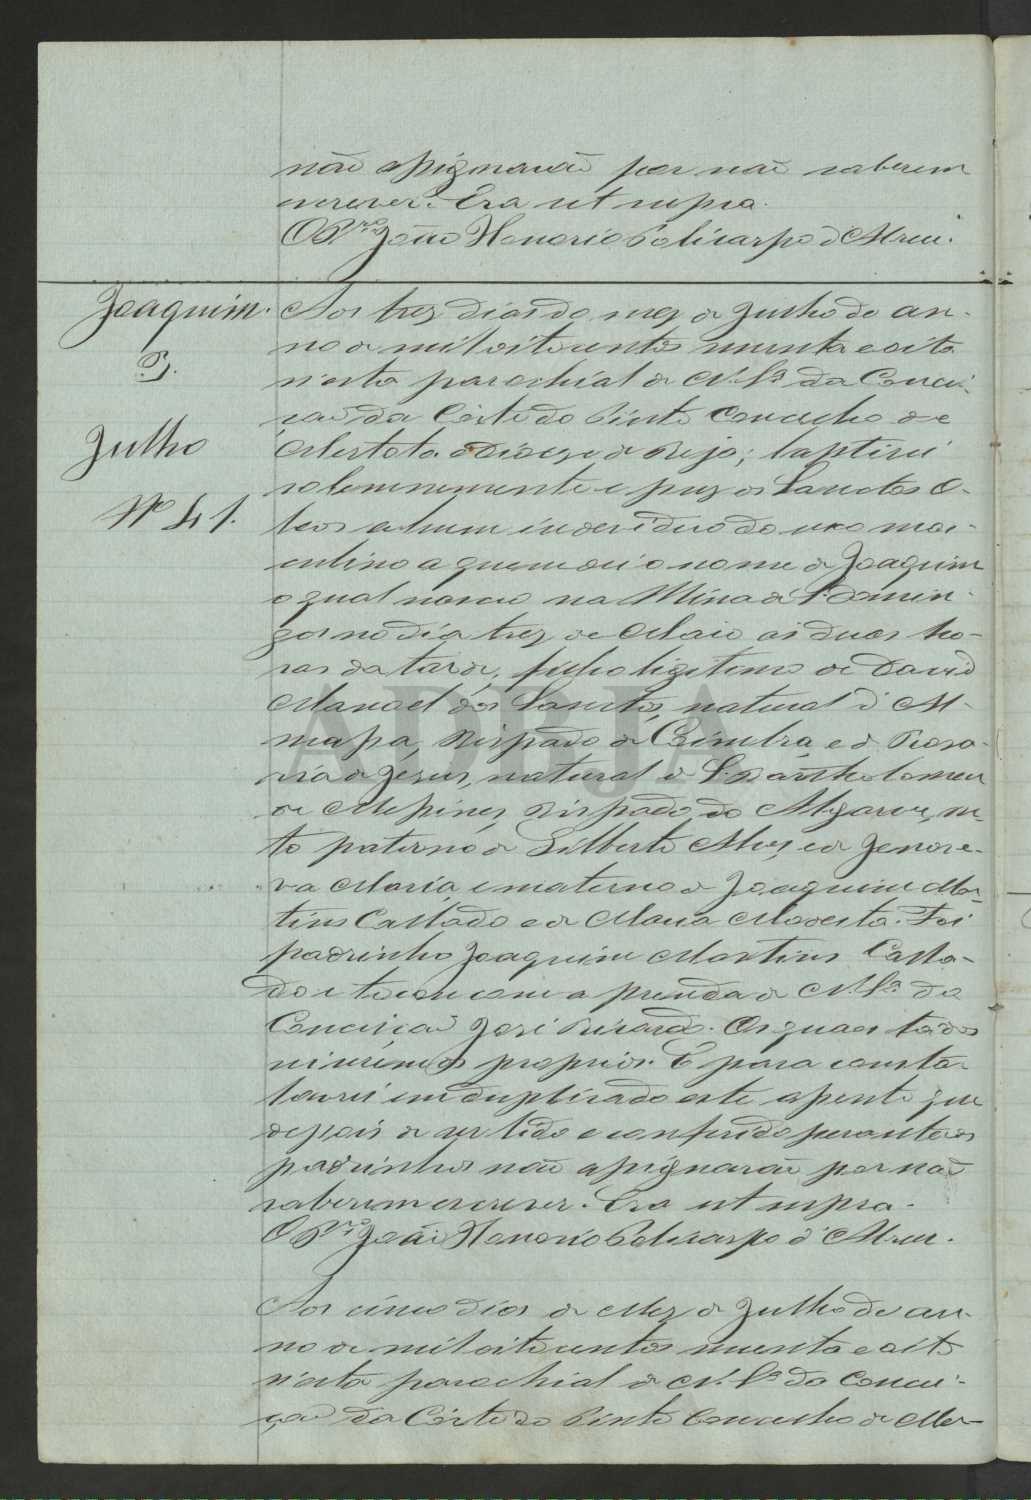 não assignarão por não saberem
escrever. Era ut supra.
O P.re João Honorio Policarpo d'Abreu.
Joaquim.
3.
Julho
Nº 41.
Aos tres dias do mez de Julho do an-
no de mil oitocentos noventa e oito
n'esta parochial de N. Sª da Concei-
ção da Côrte do Pinto Concelho de
Mertola e Diocese de Beja; baptisei
solemnemente e puz os Sanctos O-
leos a hum individuo do sexo mas-
culino a quem dei o nome de Joaquim
o qual nasceu na Mina de S. Domin-
gos no dia tres de Maio ás duas ho-
ras da tarde, filho ligitimo de David
Manoel dos Santos, natural d'Al-
, Bispado de Coimbra, e de Rosa-
ria de Jesus, natural de S. Bartholomeu
de Messines Bispado do Algarve, ne-
to paterno de Gilberto Alves, e de Genove-
va Maria, e materno de Joaquim Mar-
tins Callado e de Maria Modesta. Foi
padrinho Joaquim Martins Calla-
do e tocou com a prenda de N. Sª da
Conceição José Ricardo. Os quaes todos
sei serem os proprios. E para constar
lavrei em duplicado este assento que
depois de ser lido e conferido perante os
padrinhos não assignarão por não
saberem escrever. Era ut supra.
O P.re João Honorio Policarpo d'Abreu.
Aos cinco dias de Mez de Julho do an-
no de mil oitocentos noventa e oito
n'esta parochial de N. Sª da Concei-
ção da Côrte do Pinto Concelho de Mer-
ADBJA